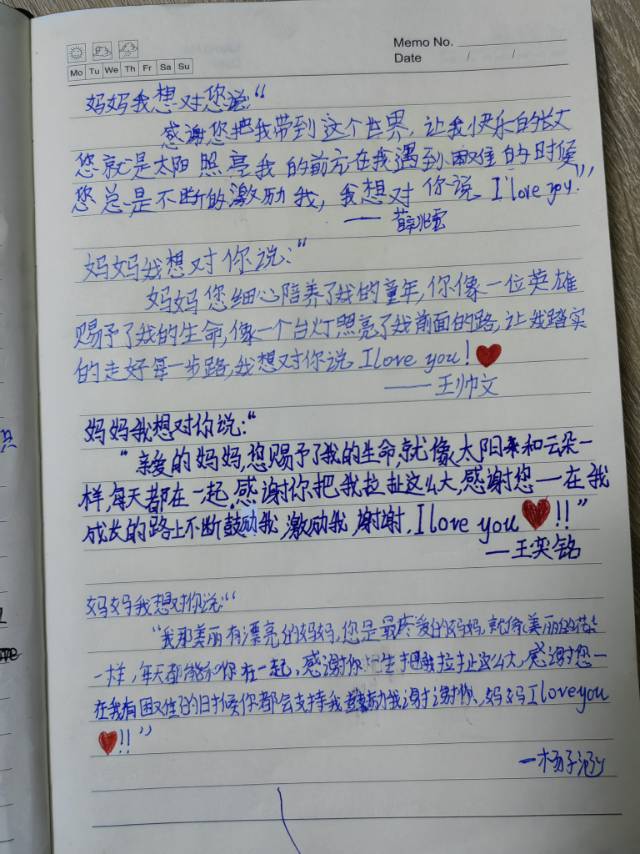 Memo No.
Date / /
Mo Tu We Th Fr Sa Su
妈妈我想对您说:“
感谢您把我带到这个世界,让我快乐的长大
您就是太阳照亮我的前方在我遇到困难的时候
您总是不断的激励我,我想对你说 I love you.”
——薛兆雲
妈妈我想对你说:“
妈妈您细心陪养了我的童年,你像一位英雄
赐予了我的生命,像一个台灯照亮了我前面的路,让我踏实
的走好每一步路,我想对你说 I love you!❤
——王帅文
妈妈我想对你说:“
“亲爱的妈妈,您赐予了我的生命,就像太阳和云朵一
样,每天都在一起,感谢你把我拉扯这么大,感谢您一在我
成长的路上不断鼓励我,激励我,谢谢,I love you❤!!”
—王奕铭
妈妈我想对你说:“
“我那美丽有漂亮的妈妈,您是最疼爱的妈妈,就像美丽的花
一样,每天都能和你在一起,感谢你 把我拉扯这么大,感谢您一
在我有困难的时候你都会支持我 我谢谢你,妈妈I love you
❤!!”
—杨子涵